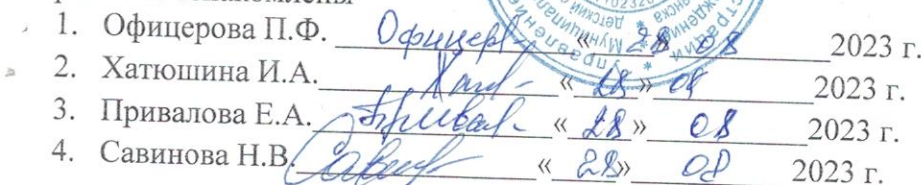 1. Офицерова П.Ф. Офицер «28» 08 2023 г.
2. Хатюшина И.А. «28» 08 2023 г.
3. Привалова Е.А. «28» 08 2023 г.
4. Савинова Н.В. «28» 08 2023 г.